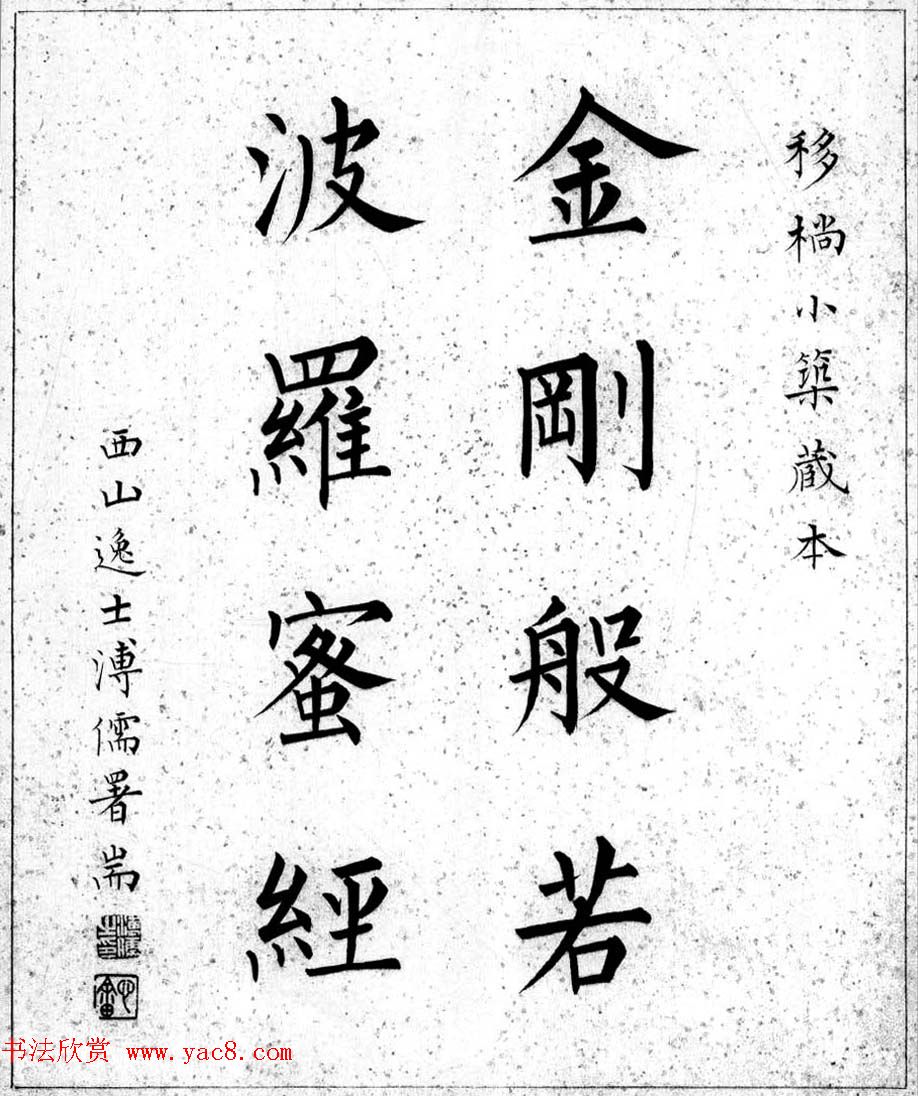 移小築藏本
金剛般若
波羅蜜經
西山逸士溥儒署耑
溥儒之印
心畬
书法欣赏 www.yac8.com